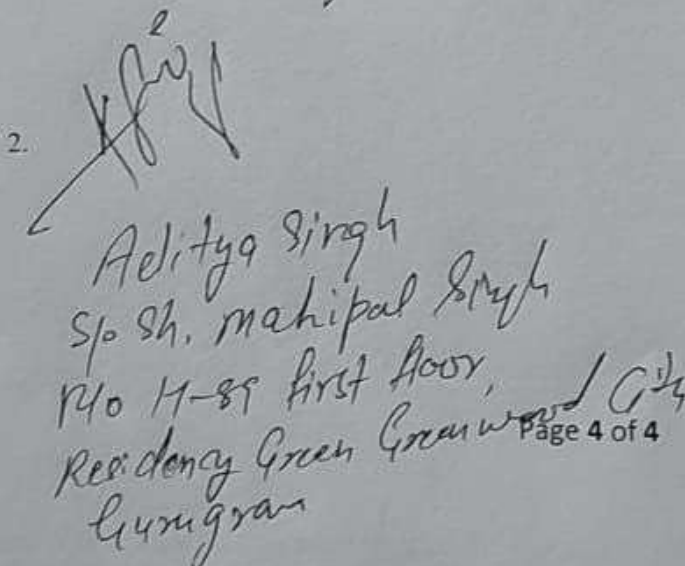 2.
Aditya Singh
S/o Sh. Mahipal Singh
R/o H-89 first floor,
Residency Green Greenwood City
Page 4 of 4
Gurugram